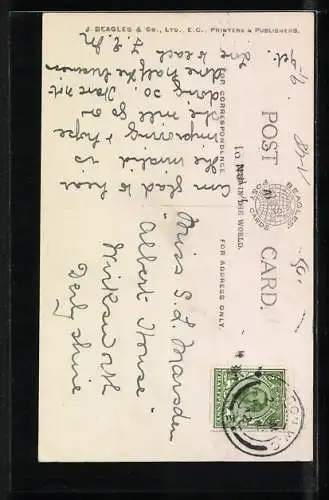 J. BEAGLES & Co., LTD., E.C., PRINTERS & PUBLISHERS.
POST CARD.
BEAGLES'
POSTCARDS
IN THE WORLD.
FOR CORRESPONDENCE
FOR ADDRESS ONLY.
am glad to hear
the invalid is
improving & hope
she will go on
doing so. Have not
done half the
yet.
Love to each
Miss S. L. Marsden
"Albert House"
Wirksworth
Derbyshire